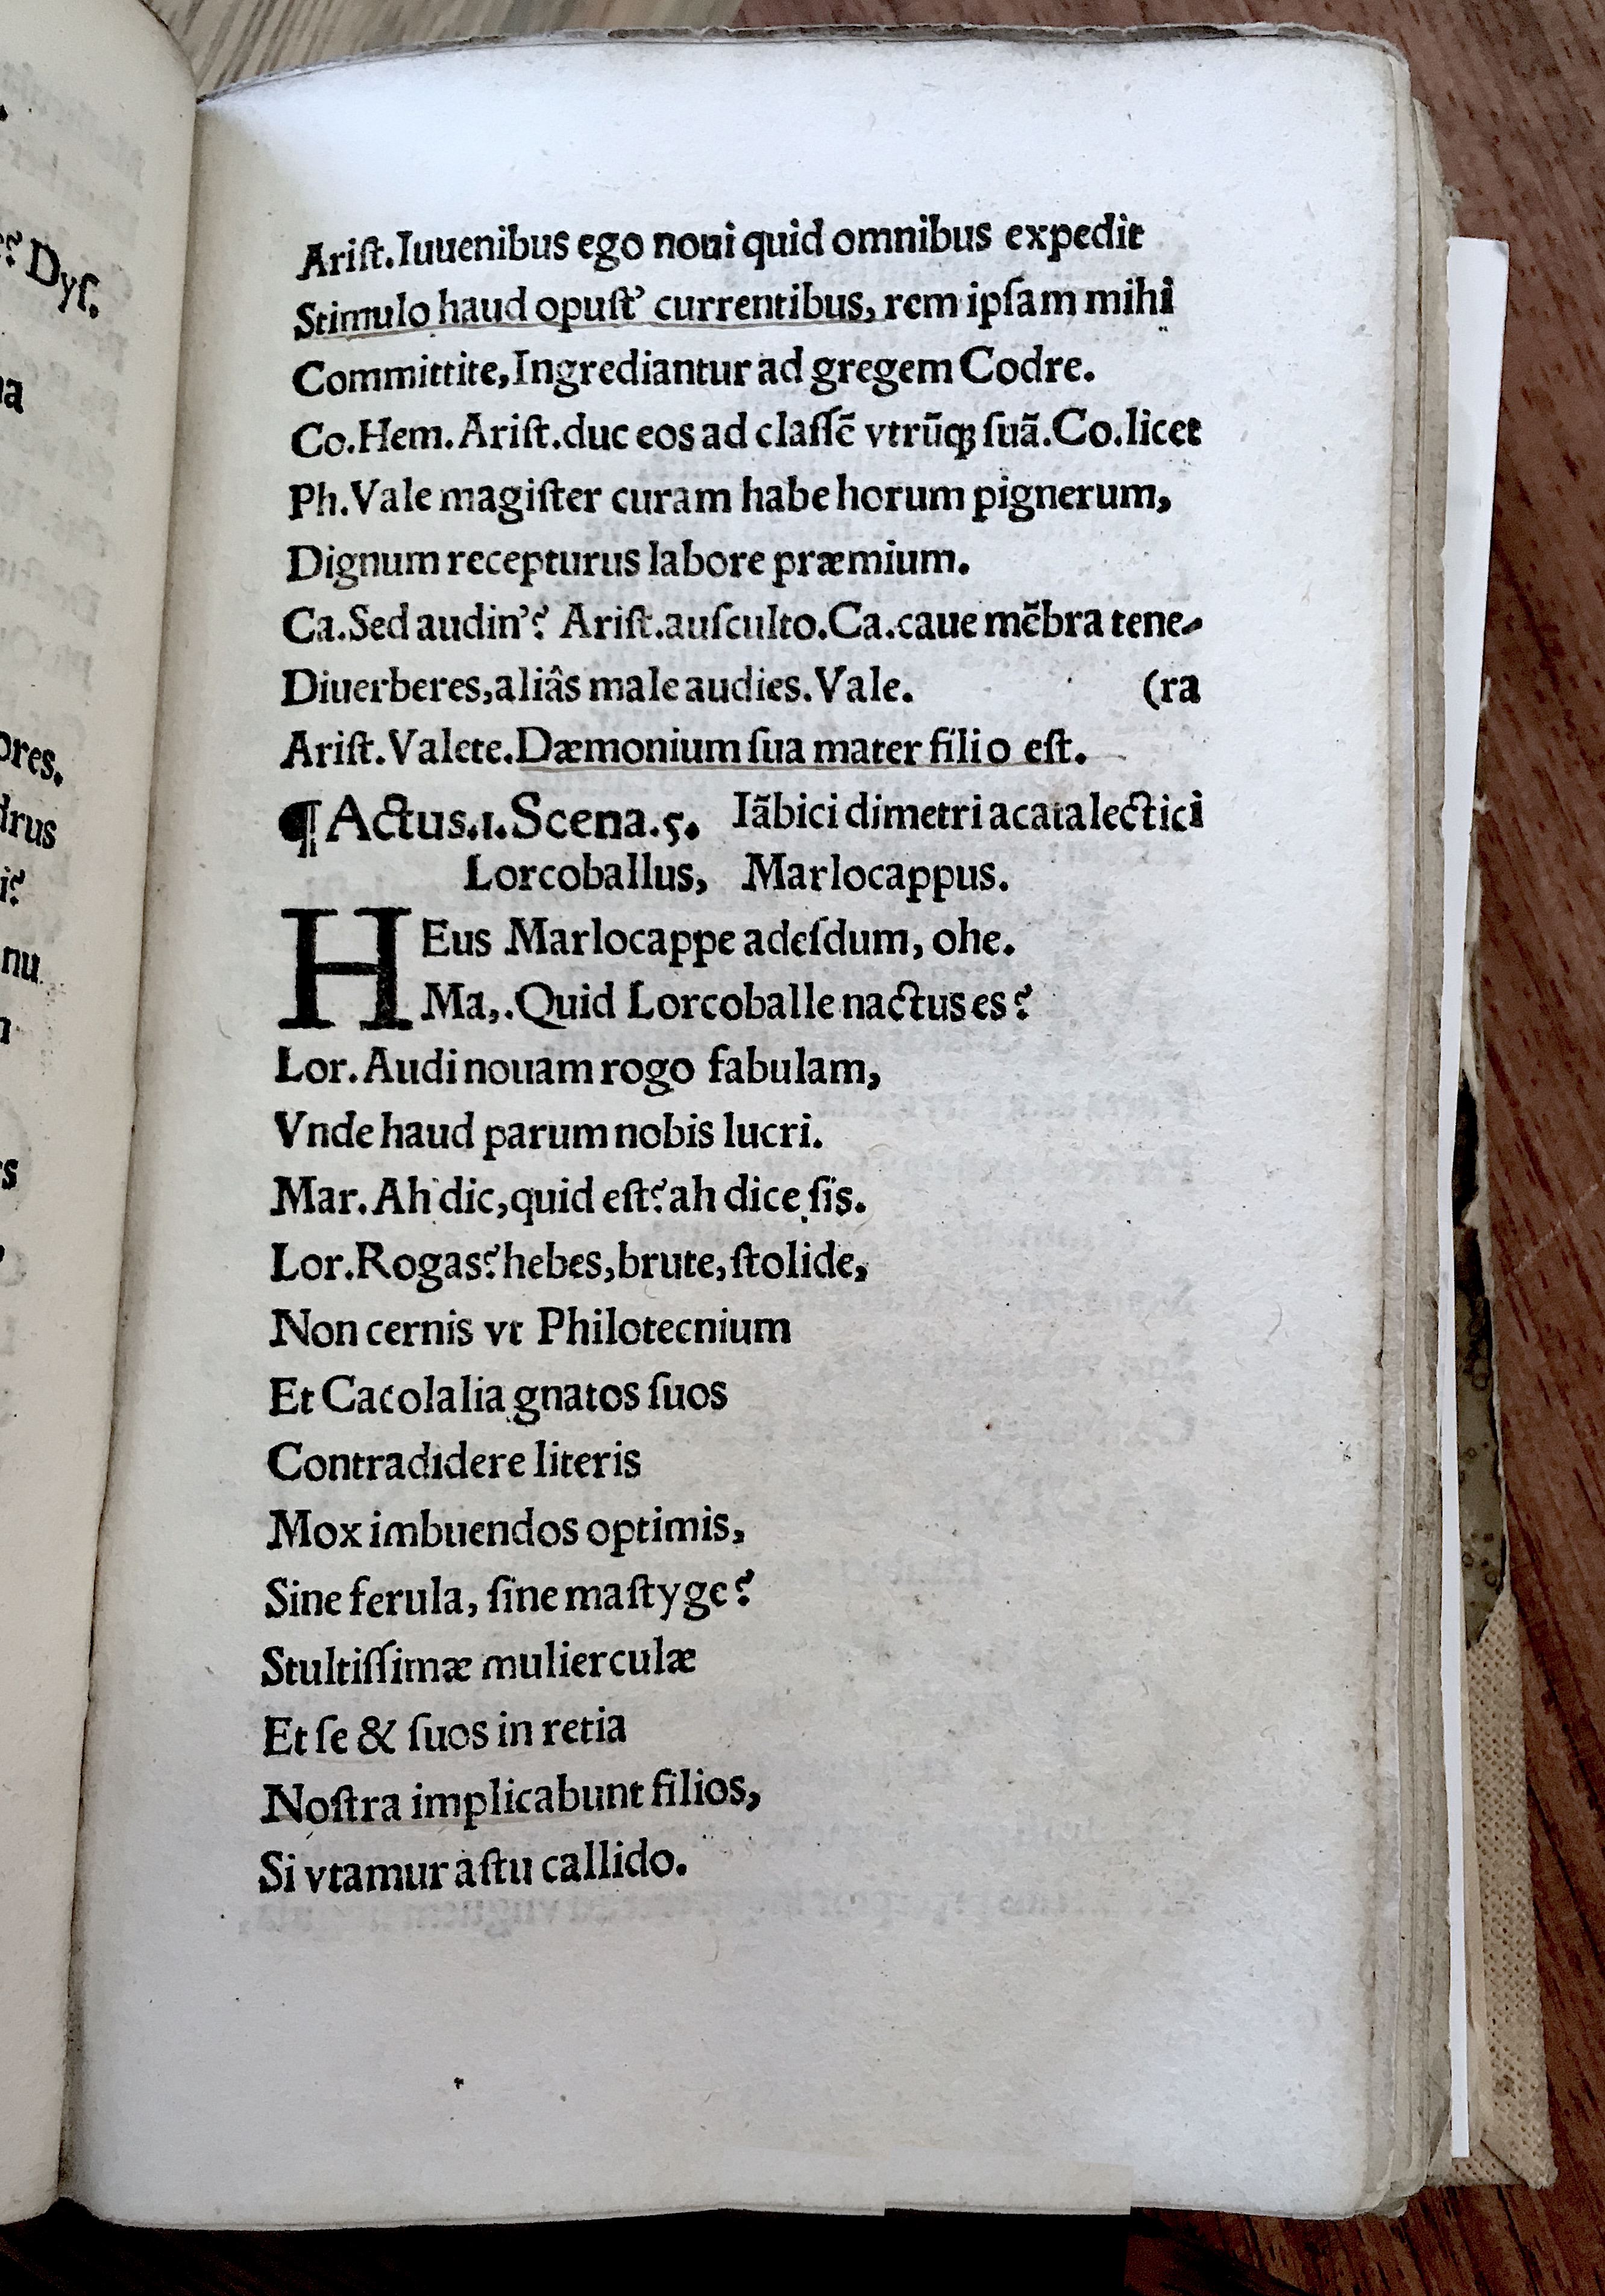 Ariſt.Iuuenibus ego noui quid omnibus expedit
Stimulo haud opuſt’ currentibus, rem ipſam mihi
Committite,Ingrediantur ad gregem Codre.
Co.Hem.Ariſt.duc eos ad claſſẽ vtrũqꝫ ſuã.Co.licet
Ph.Vale magiſter curam habe horum pignerum,
Dignum recepturus labore præmium.
Ca.Sed audin’? Ariſt.auſculto.Ca.caue mẽbra tene-
Diuerberes,aliâs male audies.Vale. (ra
Ariſt.Valete.Dæmonium ſua mater filio eſt.
¶Actus.1.Scena.5. Iãbici dimetri acatalectici
Lorcoballus, Marlocappus.
HEus Marlocappe adeſdum, ohe.
Ma,.Quid Lorcoballe nactus es?
Lor.Audi nouam rogo fabulam,
Vnde haud parum nobis lucri.
Mar.Ah dic,quid eſt?ah dice ſis.
Lor.Rogas?hebes,brute,ſtolide,
Non cernis vt Philotecnium
Et Cacolalia gnatos ſuos
Contradidere literis
Mox imbuendos optimis,
Sine ferula, ſine maſtyge?
Stultiſſimæ mulierculæ
Et ſe & ſuos in retia
Noſtra implicabunt filios,
Si vtamur aſtu callido.
? Dyſ.
ores.
drus
i?
nu